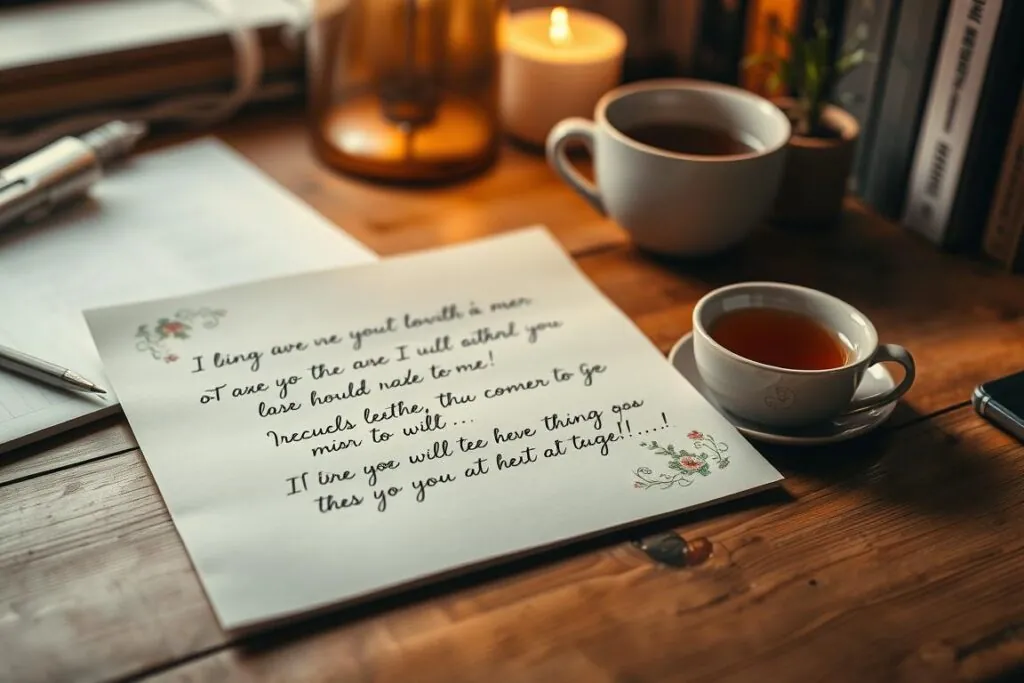 I liing ave ve yout lovith á men
oT axe yo the are I will oithnl you
lase hould nade to me!
Irecucls leethe, thu comer to ge
misir to will ...
If iire yoe will tee heve thing gos
thes yo you at hert at tuge!!....!